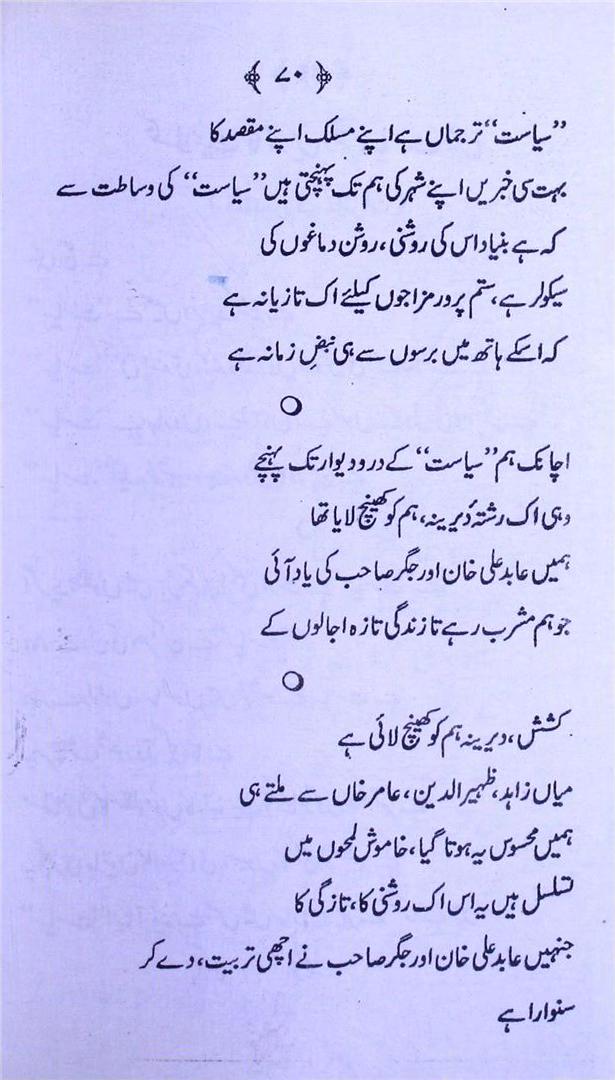 ۷۰
”سیاست“ ترجماں ہے اپنے مسلک اپنے مقصد کا
بہت سی خبریں اپنے شہر کی ہم تک پہنچتی ہیں ”سیاست“ کی وساطت سے
کہ ہے بنیاد اس کی روشنی، روشن دماغوں کی
سیکولر ہے، ستم پرور مزاجوں کیلئے اک تازیانہ ہے
کہ اسکے ہاتھ میں برسوں سے ہی نبضِ زمانہ ہے
اچانک ہم ”سیاست“ کے در و دیوار تک پہنچے
وہی اک رشتۂ دیرینہ، ہم کو کھینچ لایا تھا
ہمیں عابد علی خان اور جگر صاحب کی یاد آئی
جو ہم مشرب رہے تا زندگی تازہ اجالوں کے
کشش، دیرینہ ہم کو کھینچ لائی ہے
میاں زاہد، ظہیر الدین، عامر خاں سے ملتے ہی
ہمیں محسوس یہ ہوتا گیا، خاموش لمحوں میں
تسلسل ہیں یہ اس اک روشنی کا، تازگی کا
جنہیں عابد علی خان اور جگر صاحب نے اچھی تربیت، دے کر
سنوارا ہے